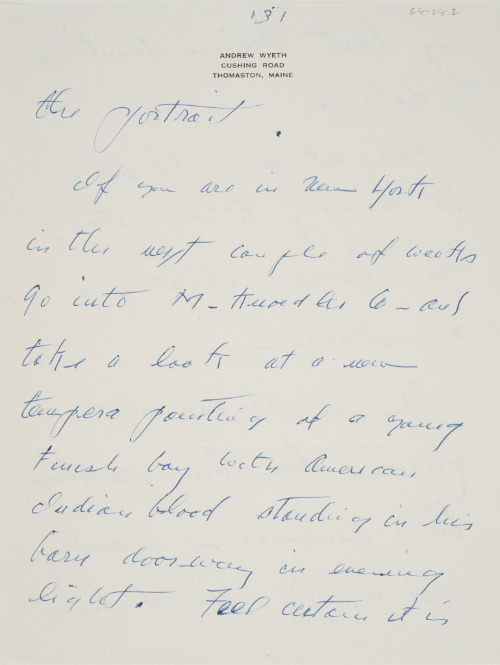 131
64-24.2
ANDREW WYETH
CUSHING ROAD
THOMASTON, MAINE
the portrait.
If you are in New York
in the next couple of weeks
go into M- Knoedler Co - and
take a look at a new
tempera painting of a young
Finish boy with American
Indian blood standing in his
barn doorway in evening
light. Feel certain it is